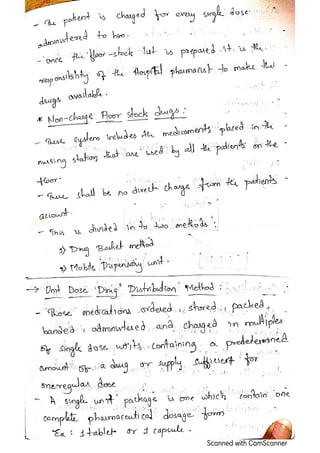 - The patient is charged for every single dose
administered to him.
- once the floor-stock list is prepared. it. is the
responsibility of the Hospital pharmacist to make the
drugs available.
* Non-charge Floor stock drugs :
- These system includes the medicaments placed in the
nursing station that are used by all the patients on the
floor.
- There shall be no direct charge from the patients
account.
- This is divided in to two methods :
1) Drug Basket method
2) Mobile Dispensary unit.
→ Unit Dose Drug Distribution Method :
- Those medications ordered, stored, packed,
handed, administered and charged in multiples
of single dose units containing a predetermined
amount of a drug or supply sufficient for
one regular dose
- A single unit package is one which contain one
complete pharmaceutical dosage form
Ex : 1 tablet or 1 capsule.
Scanned with CamScanner